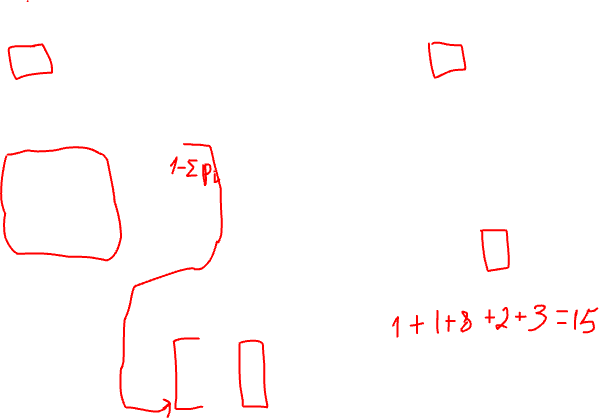 1-Σpi
1+1+8+2+3=15